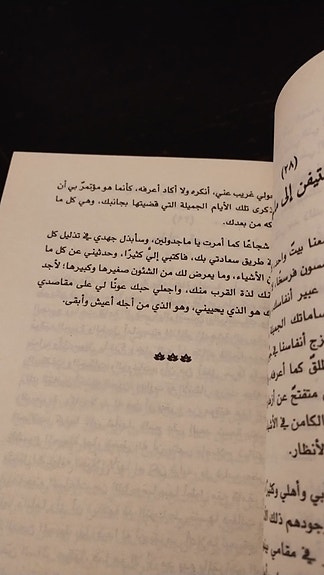 (٢٨)
ستيفن إلى
حولي غريب عني، أنكره ولا أكاد أعرفه، كأنما هو مؤتمرٌ بي أن
ذكرى تلك الأيام الجميلة التي قضيتها بجانبك، وهي كل ما
كه من بعدك.
شجاعًا كما أمرت يا ماجدولين، وسأبذل جهدي في تذليل كل
طريق سعادتي بك، فاكتبي إليَّ كثيرًا، وحدثيني عن كل ما
الأشياء، وما يعرض لك من الشئون صغيرها وكبيرها؛ لأجد
تلك لذة القرب منك، واجعلي حبك عونًا لي على مقاصدي
هو الذي يحييني، وهو الذي من أجله أعيش وأبقى.
بيتٌ واحد
عبير أنفاسك
الجميلة
نزج أنفاسنا في
كما أعرفه
متفتحٌ عن
الكامن في
الأنظار.
بي وأهلي
جودهم ذلك
في مقامي